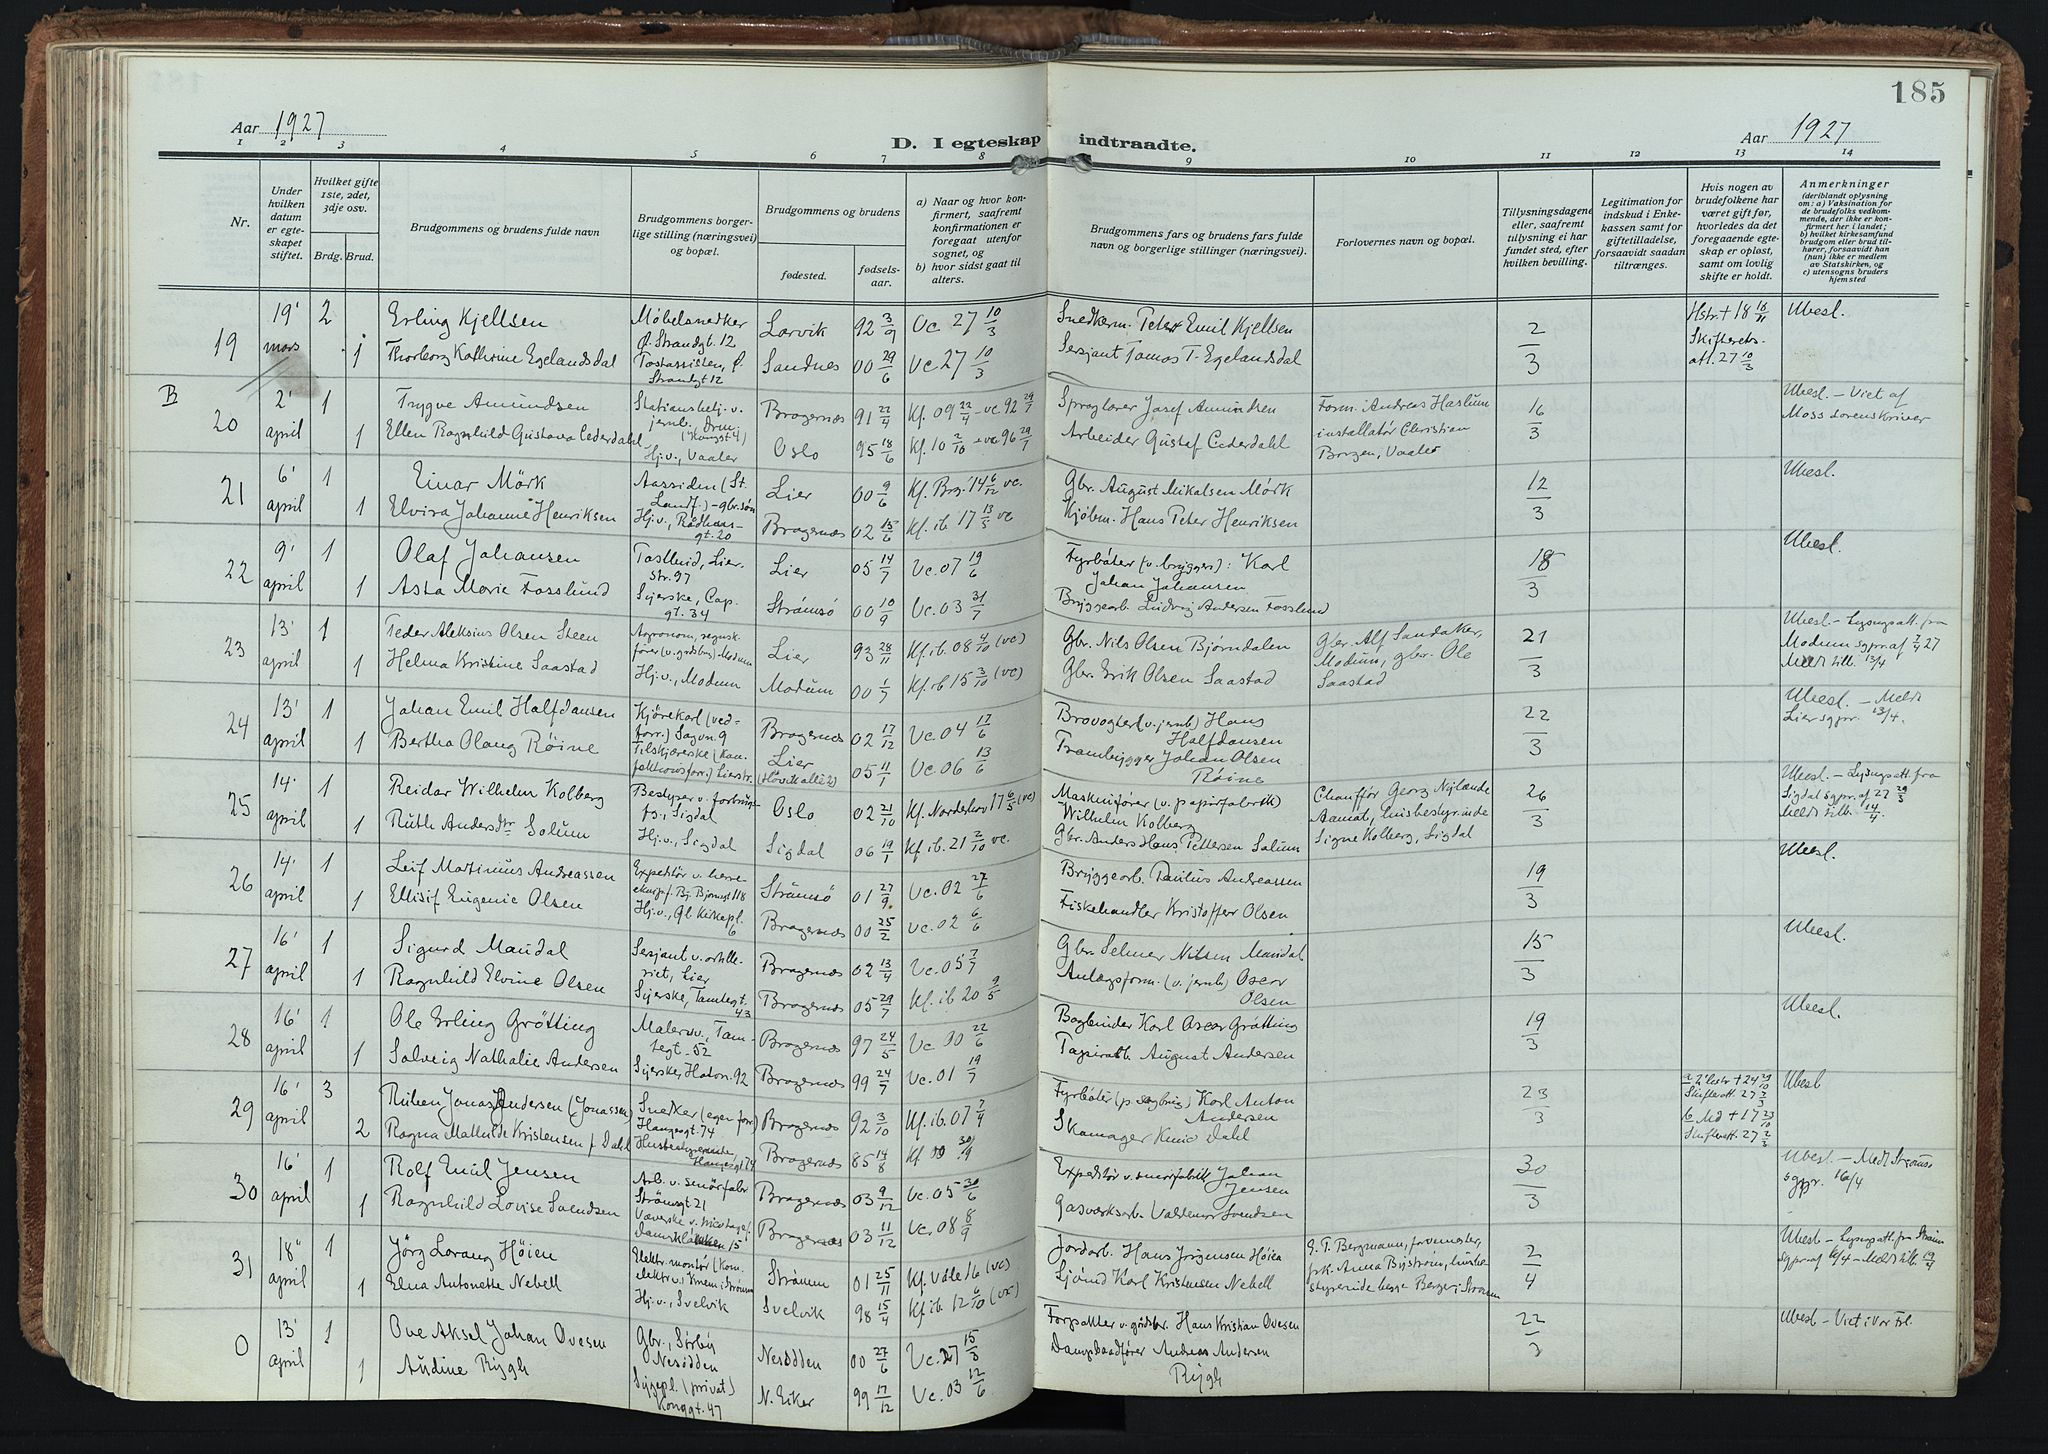 185
Aar 1927
D. I egteskap indtraadte.
Aar 1927
1 2 3 4 5 6 7 8 9 10 11 12 13 14
Nr.
Under hvilken datum er egteskapet stiftet.
Hvilket gifte 1ste, 2det, 3dje osv.
Brdg. Brud.
Brudgommens og brudens fulde navn
Brudgommens borgerlige stilling (næringsvei) og bopæl.
Brudgommens og brudens
fødested. fødselsaar.
a) Naar og hvor konfirmert, saafremt konfirmationen er foregaat utenfor sognet, og
b) hvor sidst gaat til alters.
Brudgommens fars og brudens fars fulde navn og borgerlige stillinger (næringsvei).
Forlovernes navn og bopæl.
Tillysningsdagene eller, saafremt tillysning ei har fundet sted, efter hvilken bevilling.
Legitimation for indskud i Enkekassen samt for giftetilladelse, forsaavidt saadan tiltrænges.
Hvis nogen av brudefolkene har været gift før, hvorledes da det foregaaende egteskap er opløst, samt om lovlig skifte er holdt.
Anmerkninger (deriblandt oplysning om: a) Vaksination for de brudefolks vedkommende, der ikke er konfirmert her i landet; b) hvilket kirkesamfund brudgom eller brud tilhører, forsaavidt han (hun) ikke er medlem av Statskirken, og c) utensogns bruders hjemsted
19 19' mars 2 Erling Kjellsen Møbelsnedker Ø. Strandgt. 12 Larvik 92 3/9 Vc 27 10/3 Snedkerm. Peter Emil Kjellsen 2/3 Hstr. + 18 Skifteretsatt. 27 10/3 Ubesl.
1 Thorborg Kathrine Egelandsdal Ø. Strandgt 12 Sandnes 00 29/6 Vc 27 10/3 Sersjant Tomas T. Egelandsdal
B
20 2' april 1 Trygve Amundsen Bragernæs 91 22/4 Kf. 09 22/4 - vc. 92 29/7 Sproglærer Josef Amundsen Form. Andreas Haslum 16/3 Ubesl. - Viet af Moss sorenskriver
1 Ellen Ragnhild Gustava Cederdahl Hj. v., Vaaler Oslo 95 18/6 Kf. 10 2/10 - vc 96 29/7 Arbeider Gustaf Cederdahl installatør Christian Borgen, Vaaler
21 6' april 1 Einar Mörk Aassiden Lier 00 9/6 Kf. Brg. 14 6/12 vc. Gbr. August Mikalsen Mörk 12/3 Ubesl.
1 Elvira Johanne Henriksen Hj. v., Rådhusgt. 20 Bragernæs 02 15/6 Kf. ib. 17 13/5 vc Kjøbm. Hans Peter Henriksen
22 9' april 1 Olaf Johansen Lierstr. 97 Lier 05 14/7 Vc. 07 19/6 Fyrbøter (v. bryggeri): Karl Johan Johansen 18/3 Ubesl.
1 Asta Marie Fosslund Syerske, Cap. gt. 34 Strömsö 00 10/9 Vc. 03 31/7 Bryggearb. Ludvig Andersen Fosslund
23 13' april 1 Peder Aleksius Olsen Steen Agronom, Modum Lier 93 28/11 Kf. ib. 08 4/10 (vc) Gbr. Nils Olsen Bjørndalen Gbr. Alf Sandaker, 21/3 Ubesl. - Lysngsatt. fra Modum sgpr. af 7/4 27 Meldt tilb. 13/4
1 Helma Kristine Saastad Hj. v., Modum Modum 00 1/7 Kf. ib 15 3/10 (vc) Gbr. Erik Olsen Saastad Modum, gbr. Ole Saastad
24 13' april 1 Johan Emil Halfdansen Kjørekarl Sagvn. 9 Bragernæs 02 17/12 Vc. 04 17/6 Brovogter (v. jernb.) Hans Halfdansen 22/3 Ubesl. - Meldt Lier sgpr. 13/4.
1 Bertha Olaug Röine Tilskjærerske Lierstr. Lier 05 11/1 Vc. 06 13/6 Johan Olsen Röine
25 14' april 1 Reidar Wilhelm Kolberg Bestyrer Sigdal Oslo 02 21/10 Kf. Norderhov 17 6/5 (vc) Maskinfører (v. papirfabrik) Wilhelm Kolberg Chauffør Georg Nylænde 26/3 Ubesl. - Lysngsatt fra Sigdal sgpr. af 27 29/3 Meldt tilb. 14/4.
1 Ruth Andersdtr Solum Hj. v., Sigdal Sigdal 06 19/1 Kf ib. 21 2/10 vc. Gbr. Anders Hans Pettersen Solum Aamot, husbestyrinde Signe Kolberg, Sigdal
26 14' april 1 Leif Martinius Andreassen Expeditør Strömsö 01 27/9 Vc. 02 27/6 Bryggearb. Paulus Andreassen 19/3 Ubesl.
1 Ellisif Eugenie Olsen Hj. v., Gl. Kirkepl. 6 Bragernæs 00 25/2 Vc. 02 6/6 Fiskehandler Kristoffer Olsen
27 16' april 1 Sigurd Mandal Sersjant v. artilleriet, Lier Bragernæs 02 13/4 Vc. 05 7/7 Gbr. Selmer Nilsen Mandal 15/3 Ubesl.
1 Ragnhild Elvine Olsen Syerske, Tomtegt. 43 Bragernæs 05 29/7 Kf. ib 20 9/5 Anlægsform. (v. jernb.) Oscar Olsen
28 16' april 1 Ole Erling Grötting Malersv., Tomtegt. 52 Bragernæs 97 24/5 Vc. 00 22/6 Bogbinder Karl Oscar Grötting 19/3 Ubesl.
1 Solveig Nathalie Andersen Syerske, Hakon. 92 Bragernæs 99 24/7 Vc. 01 19/7 Papirarb. August Andersen
29 16' april 3 Ruben Jonas Andersen (Jonassen) Snedker (egen forr.) Haugesgt. 74 Bragernæs 92 3/10 Kf. ib. 07 7/4 Fyrbøter Karl Anton Andersen 23/3 Skifteatt. 27 Ubesl
2 Ragna Mathilde Kristensen f. Dahl Husbestyrerinde, Haugesgt 74 Bragernæs 85 14/8 Kf 00 30/9 Skomager Dahl Skifteatt. 27
30 16' april 1 Rolf Emil Jensen Arb. v. smörfabr Strömsgt 21 Bragernæs 03 9/12 Vc. 05 30/6 Expeditør v. smörfabrik Johan Jensen 30/3 Ubesl. - Meldt Strömsö sgpr. 16/4
1 Ragnhild Lovise Svendsen Væverske v. tricotagef. 15 Bragernæs 03 11/12 Vc. 08 8/9 Gasværksarb. Valdemar Svendsen
31 18' april 1 Jörg Lorang Höien Elektr. montör Strömm 01 25/11 Kf. Våle 16 (vc) Jordarb. Hans Jörgensen Höien E. T. Bergmann, fyrmester, 2/4 Ubesl. - Lysngsatt. fra Strömm sgpr. af 6/4 - Meldt tilb. 19/4
1 Elna Antonette Nebell Hj. v., Svelvik Svelvik 98 15/4 Kf ib. 12 6/10 (vc) Sjömd Karl Kristensen Nebell frk. Anna Byström, husbestyrerinde begge Berger i Strömm
0 13' april 1 Ove Aksel Johan Ovesen Gbr., Sørby Nesodden Nesodden 00 27/6 Vc. 27 15/3 Forpakter v. godsbr. Hans Kristian Ovesen 22/3 Ubesl. - Viet i Vor Frl.
1 Audine Rygh Sygepl. (privat) Konggt. 47 N. Eiker 99 17/12 Vc. 03 12/6 Dampbaadfører Andreas Andersen Rygh